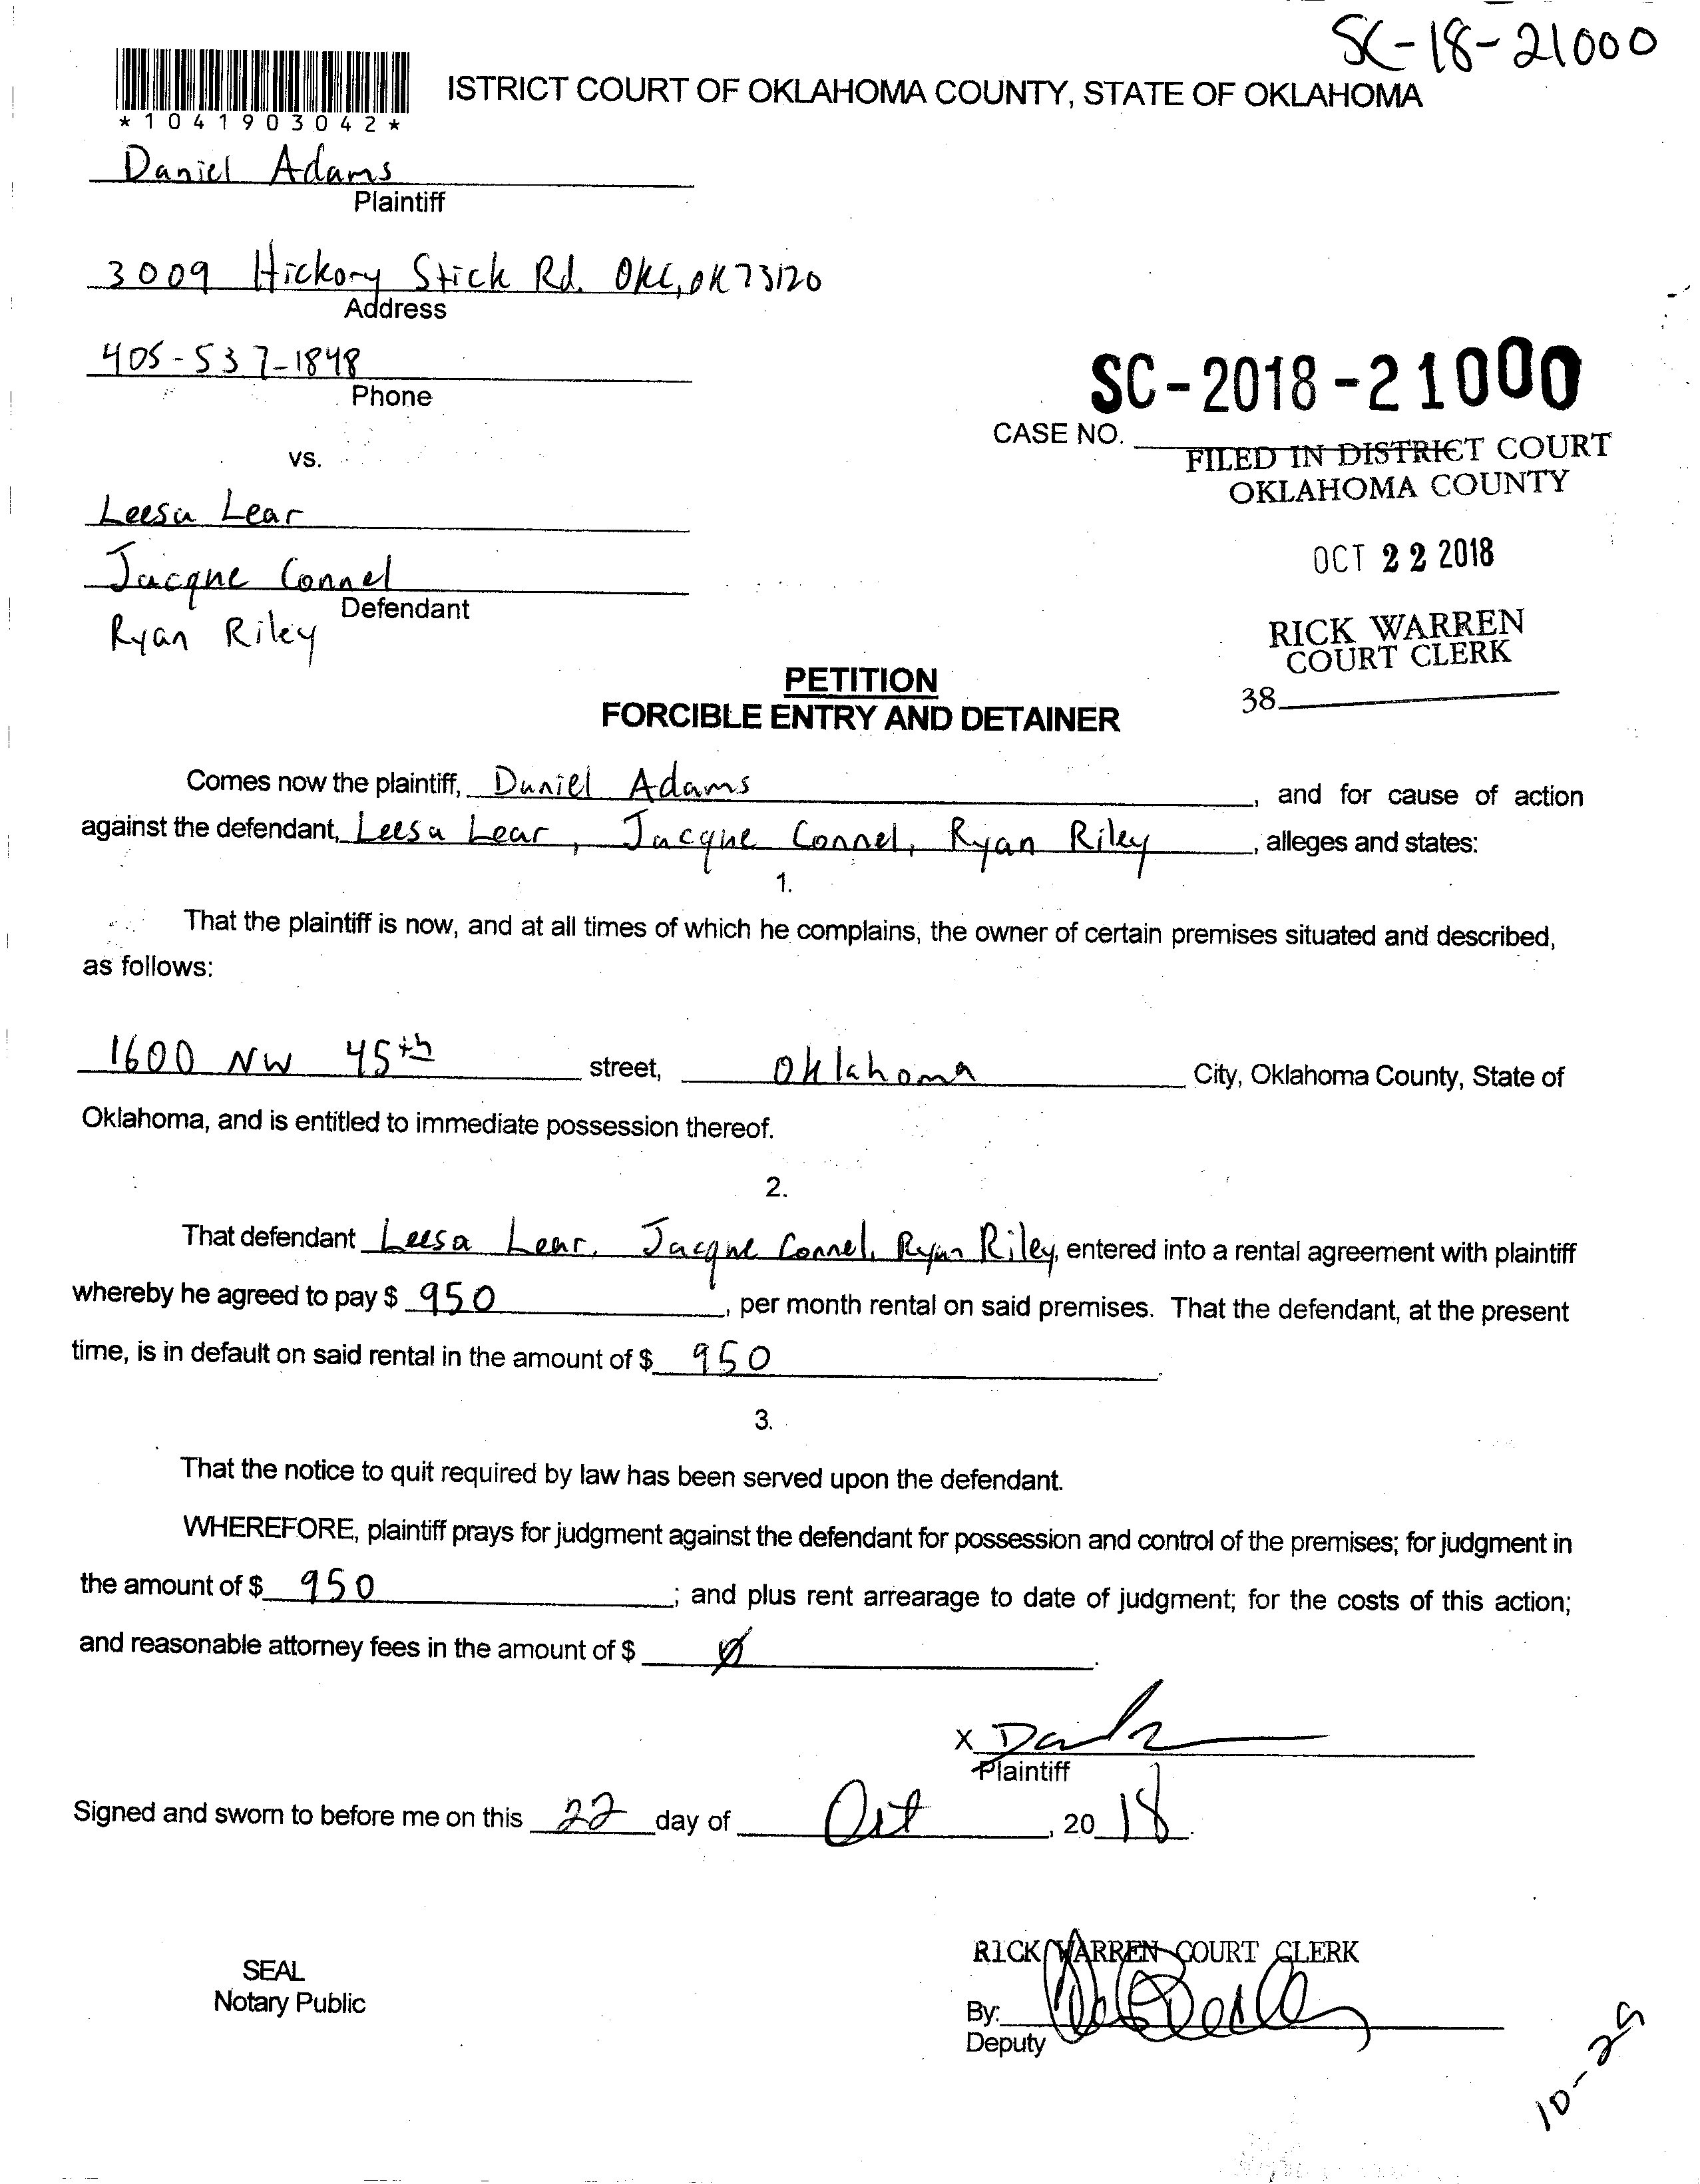 SC-18-21000
ISTRICT COURT OF OKLAHOMA COUNTY, STATE OF OKLAHOMA
*1041903042*
Daniel Adams
Plaintiff
3009 Hickory Stick Rd. OKC, OK 73120
Address
405-537-1848
Phone
SC-2018-21000
CASE NO.
vs.
FILED IN DISTRICT COURT
OKLAHOMA COUNTY
Leesa Lear
OCT 22 2018
Jacque Connel
Defendant
Ryan Riley
RICK WARREN
COURT CLERK
38
PETITION
FORCIBLE ENTRY AND DETAINER
Comes now the plaintiff, Daniel Adams, and for cause of action
against the defendant, Leesa Lear, Jacque Connel, Ryan Riley, alleges and states:
1.
That the plaintiff is now, and at all times of which he complains, the owner of certain premises situated and described,
as follows:
1600 NW 45th street, Oklahoma City, Oklahoma County, State of
Oklahoma, and is entitled to immediate possession thereof.
2.
That defendant Leesa Lear, Jacque Connel, Ryan Riley, entered into a rental agreement with plaintiff
whereby he agreed to pay $ 950, per month rental on said premises. That the defendant, at the present
time, is in default on said rental in the amount of $ 950.
3.
That the notice to quit required by law has been served upon the defendant.
WHEREFORE, plaintiff prays for judgment against the defendant for possession and control of the premises; for judgment in
the amount of $ 950; and plus rent arrearage to date of judgment; for the costs of this action;
and reasonable attorney fees in the amount of $ Ø.
X
Plaintiff
Signed and sworn to before me on this 22 day of Oct, 2018.
RICK WARREN COURT CLERK
SEAL
Notary Public
By:
Deputy
10-29